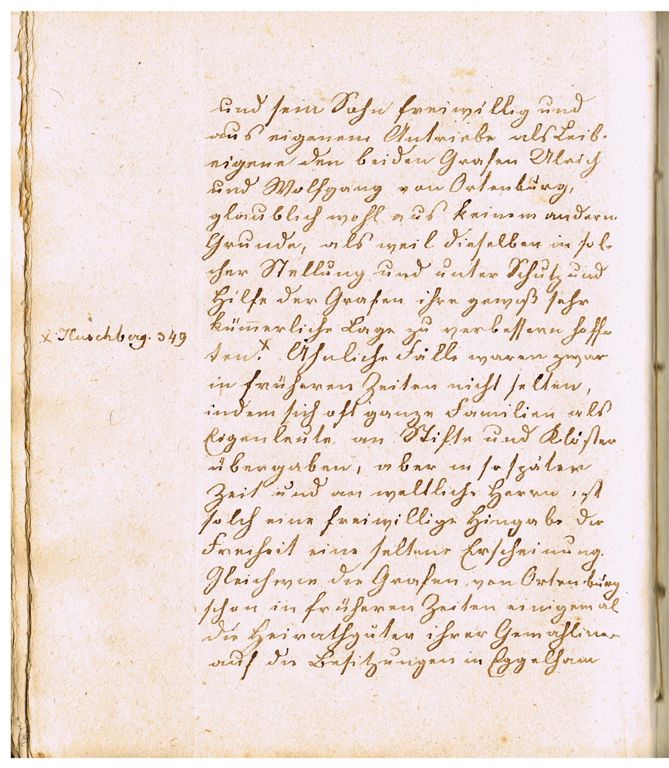 und sein Sohn freiwillig und
aus eigenem Antriebe als Leib-
eigene den beiden Grafen Ulrich
und Wolfgang von Ortenburg,
glaublich wohl aus keinem andern
Grunde, als weil dieselben in sol-
cher Stellung und unter Schutz und
Hilfe der Grafen ihre gewiß sehr
kümmerliche Lage zu verbessern hoff-
x Huschberg. 349
ten.x Ähnliche Fälle waren zwar
in früheren Zeiten nicht selten,
indem sich oft ganze Familien als
Eigenleute an Stifte und Klöster
übergaben, aber in so später
Zeit und an weltliche Herrn ist
solch eine freiwillige Hingabe der
Freiheit eine seltene Erscheinung.
Gleichwie die Grafen von Ortenburg
schon in früheren Zeiten einigemal
die Heirathgüter ihrer Gemahlinen
auf die Besitzungen in Eggelham